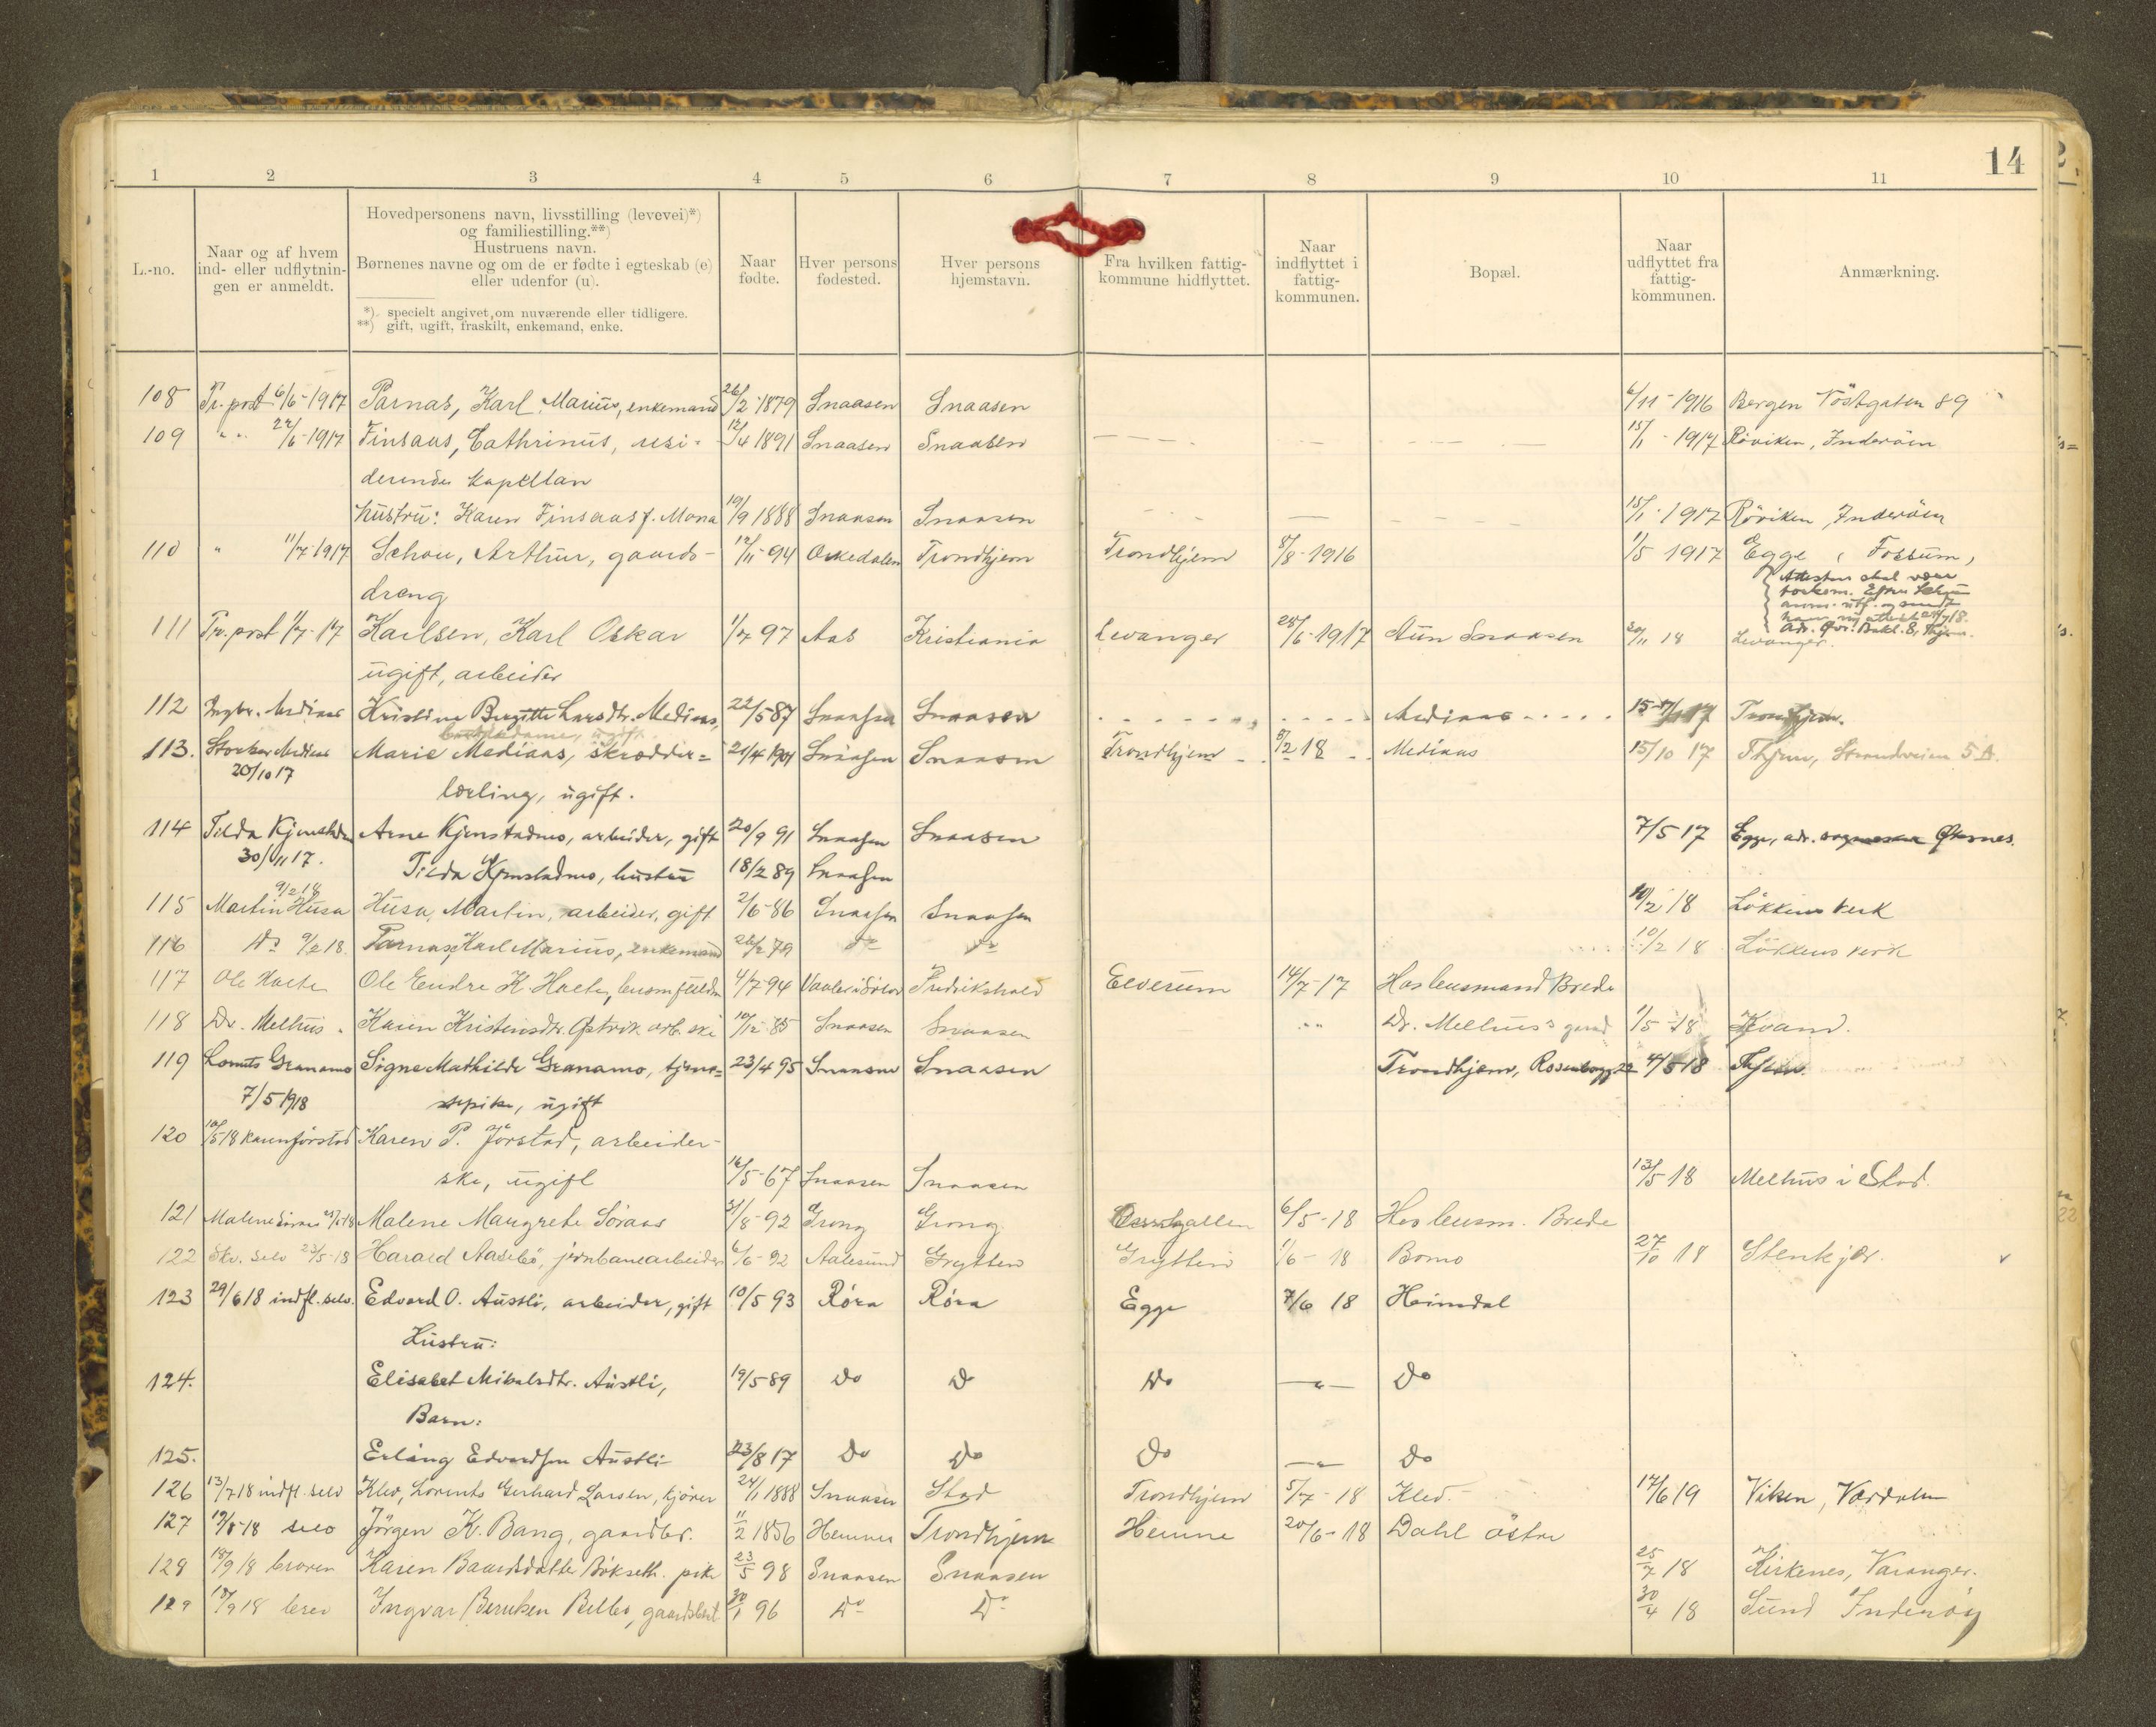 14
1 2 3 4 5 6 7 8 9 10 11
L.-no.
Naar og af hvem
ind- eller udflytnin-
gen er anmeldt.
Hovedpersonens navn, livsstilling (levevei)*)
og familiestilling.**)
Hustruens navn.
Børnenes navne og om de er fødte i egteskab (e)
eller udenfor (u).
*) specielt angivet om nuværende eller tidligere.
**) gift, ugift, fraskilt, enkemand, enke.
Naar
fødte.
Hver persons
fødested.
Hver persons
hjemstavn.
Fra hvilken fattig-
kommune hidflyttet.
Naar
indflyttet i
fattig-
kommunen.
Bopæl.
Naar
udflyttet fra
fattig-
kommunen.
Anmærkning.
108 Pr. post 6/6-1917 Parnas, Karl Marius, enkemand 26/2 1879 Snaasen Snaasen 6/11-1916 Bergen Nöstgaten 89
109 " " 22/6-1917 Finsaas, Cathrinus, resi- 12/4 1891 Snaasen Snaasen 15/1-1917 Röviken, Inderöen
derende kapellan
hustru: Karen Finsaas f. Mona 19/9 1888 Snaasen Snaasen 15/1-1917 Röviken, Inderöen
110 " 11/7-1917 Schou, Arthur, gaards- 12/11-94 Orkedalen Trondhjem Trondhjem 8/8-1916 1/5 1917 Egge, Fossum,
dreng
111 Pr. post 1/7-17 Karlsen, Karl Oskar 1/7 97 Aas Kristiania Levanger 25/6-1917 Aun Snaasen 20/11 18 Levanger.
ugift, arbeider
112 Ingbr. Mediaas Kristine Bergitte Larsdtr. Mediaas, 22/5 87 Snaasen Snaasen Mediaas Trondhjem.
113. Storker Mediaas Marie Mediaas, skrædder- 21/4 1901 Snaasen Snaasen Trondhjem 5/2 18 Mediaas 15/10 17 Thjem, Strandveien 5 A.
20/10 17 lærling, ugift.
114 Tilda Kjenstadmo Arne Kjenstadmo, arbeider, gift 20/9 91 Snaasen Snaasen 7/5 17 Egge, adr. Øksnes.
30/11 17. Tilda Kjenstadmo, hustru 18/2 89 Snaasen
9/2 18
115 Martin Husa Husa, Martin, arbeider, gift 2/6-86 Snaasen Snaasen 10/2 18 Lökkens verk
116 Do 9/2 18. Parnas, Karl Marius, enkemand 26/2 79 Do Do 10/2 18 Lökkens verk
117 Ole Haete Ole Endre K. Haete, lensm.fuldm 4/7 94 Vaaler i Solør Fredrikshald Elverum 14/7-17 Hos lensmand Brede
118 Dr. Melhus. Karen Kristensdtr. Østvik arb.ske 10/12 85 Snaasen Snaasen " " Dr. Melhus's gaard 1/5-18 Kvam.
119 Lorents Granamo Signe Mathilde Granamo, tjene- 23/4 95 Snaasen Snaasen Trondhjem, Rosenborgg 22 4/5 18 Thjem.
7/5 1918 stepike, ugift
120 10/5 18 Karen Jörstad Karen P. Jörstad, arbeider-
ske, ugift 16/5-67 Snaasen Snaasen 13/5 18 Melhus i Stod.
121 Malene Søraas Malene Margrete Søraas 31/8-92 Grong Grong 6/5-18 Hos lensm. Brede
122 Skr. selv 23/5-18 Harald Aasebö, jernbanearbeider 6/6-92 Aalesund Grytten Grytten 1/6-18 Bomo 27/10 18 Stenkjær.
123 29/6 18 indfl. selv. Edvard O. Austli, arbeider, gift 10/5 93 Røra Røra Egge 7/6 18 Heimdal
Hustru:
124. Elisabet Mikalsdtr. Austli, 19/5 89 Do Do Do —"— Do
Barn:
125. Erling Edvardsen Austli 23/8 17 Do Do Do —"— Do
126 13/7 18 indfl. selv Klev, Lorents Gerhard Larsen, kjører 24/1 1888 Snaasen Stod Trondhjem 5/7-18 Klev. 17/6 19 Viken, Værdalen
127 19/8-18 selv Jörgen K. Bang, gaardbr. 11/2 1856 Hemne Trondhjem Hemne 20/6-18 Dahl östre
128 18/9 18 broren Karen Baardsdatter Bökseth. pike 23/5 98 Snaasen Snaasen 25/7 18 Kirkenes, Varanger.
129 18/9 18 brev Ingvar Belbo, gaardsbest 30/1 96 Do Do 30/4 18 Sund Inderøy